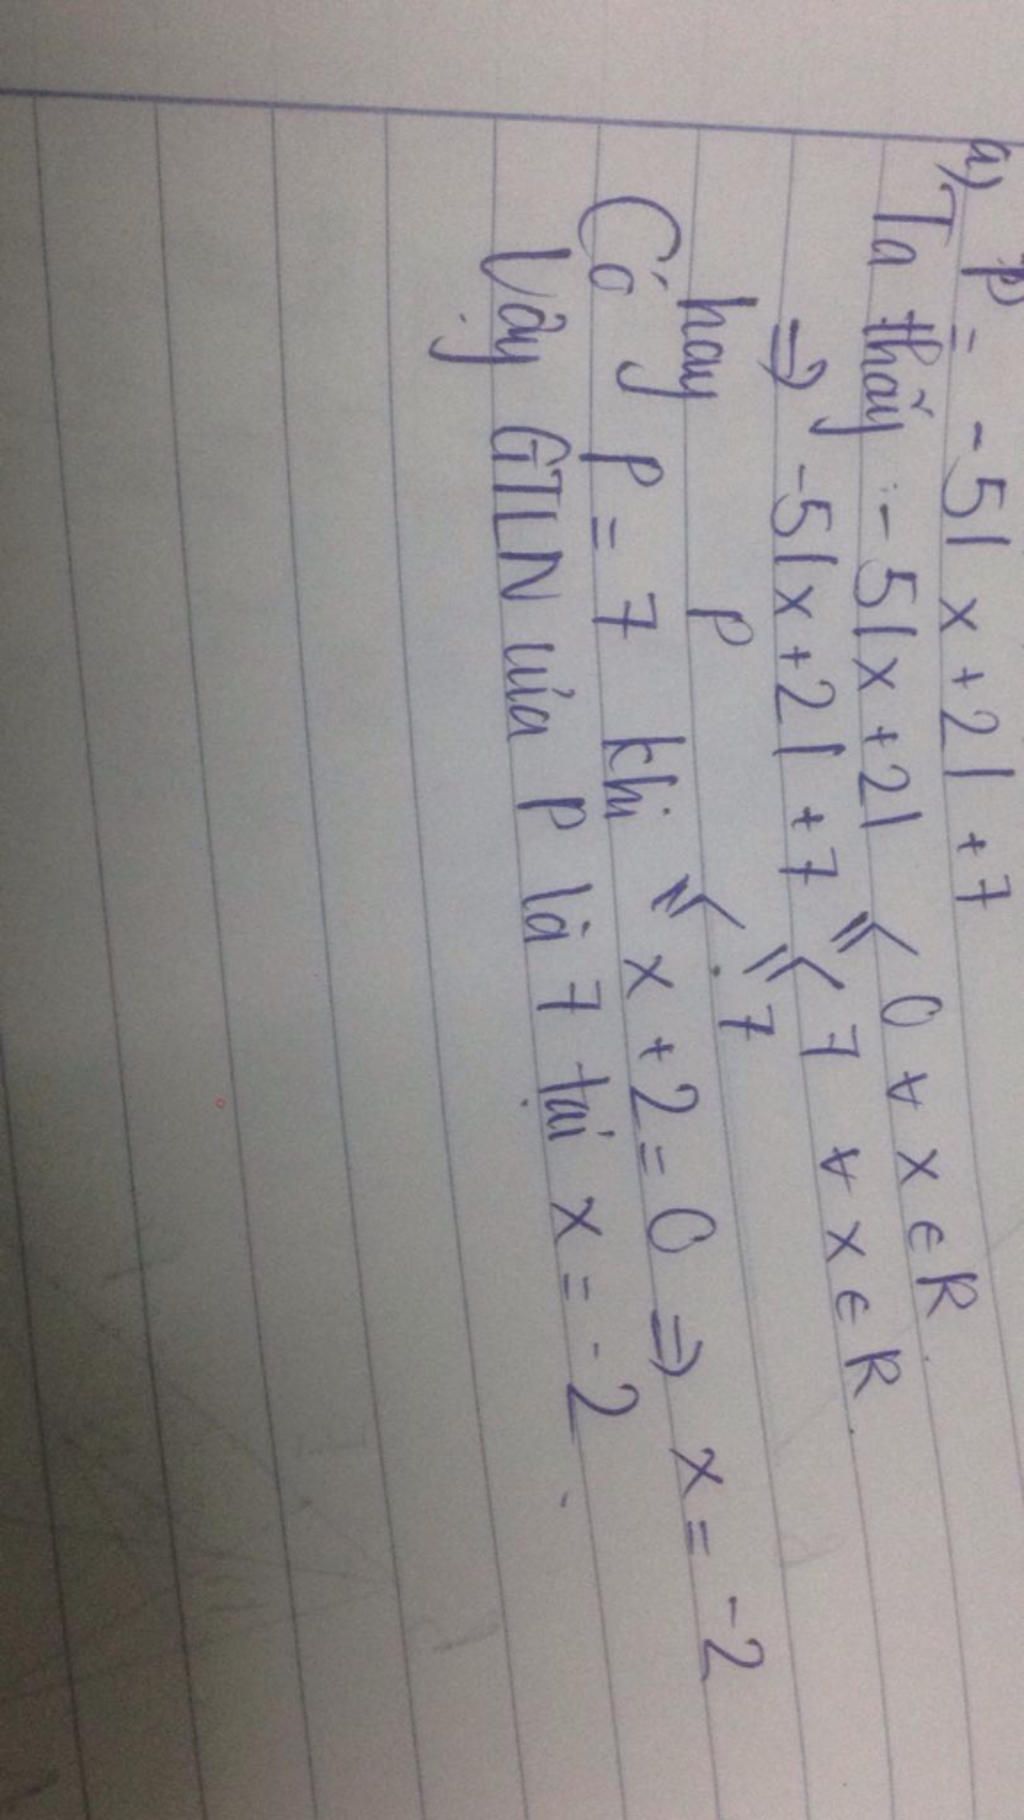 a) P = -5|x+2| +7
Ta thấy : -5|x+2| ≤ 0 ∀ x ∈ R
⇒ -5|x+2| +7 ≤ 7 ∀ x ∈ R.
hay P ≤ 7
Có P = 7 khi x+2=0 ⇒ x = -2
Vậy GTLN của P là 7 tại x = -2.